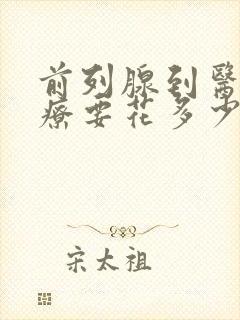 前列腺到醫
療要花多少
宋太祖